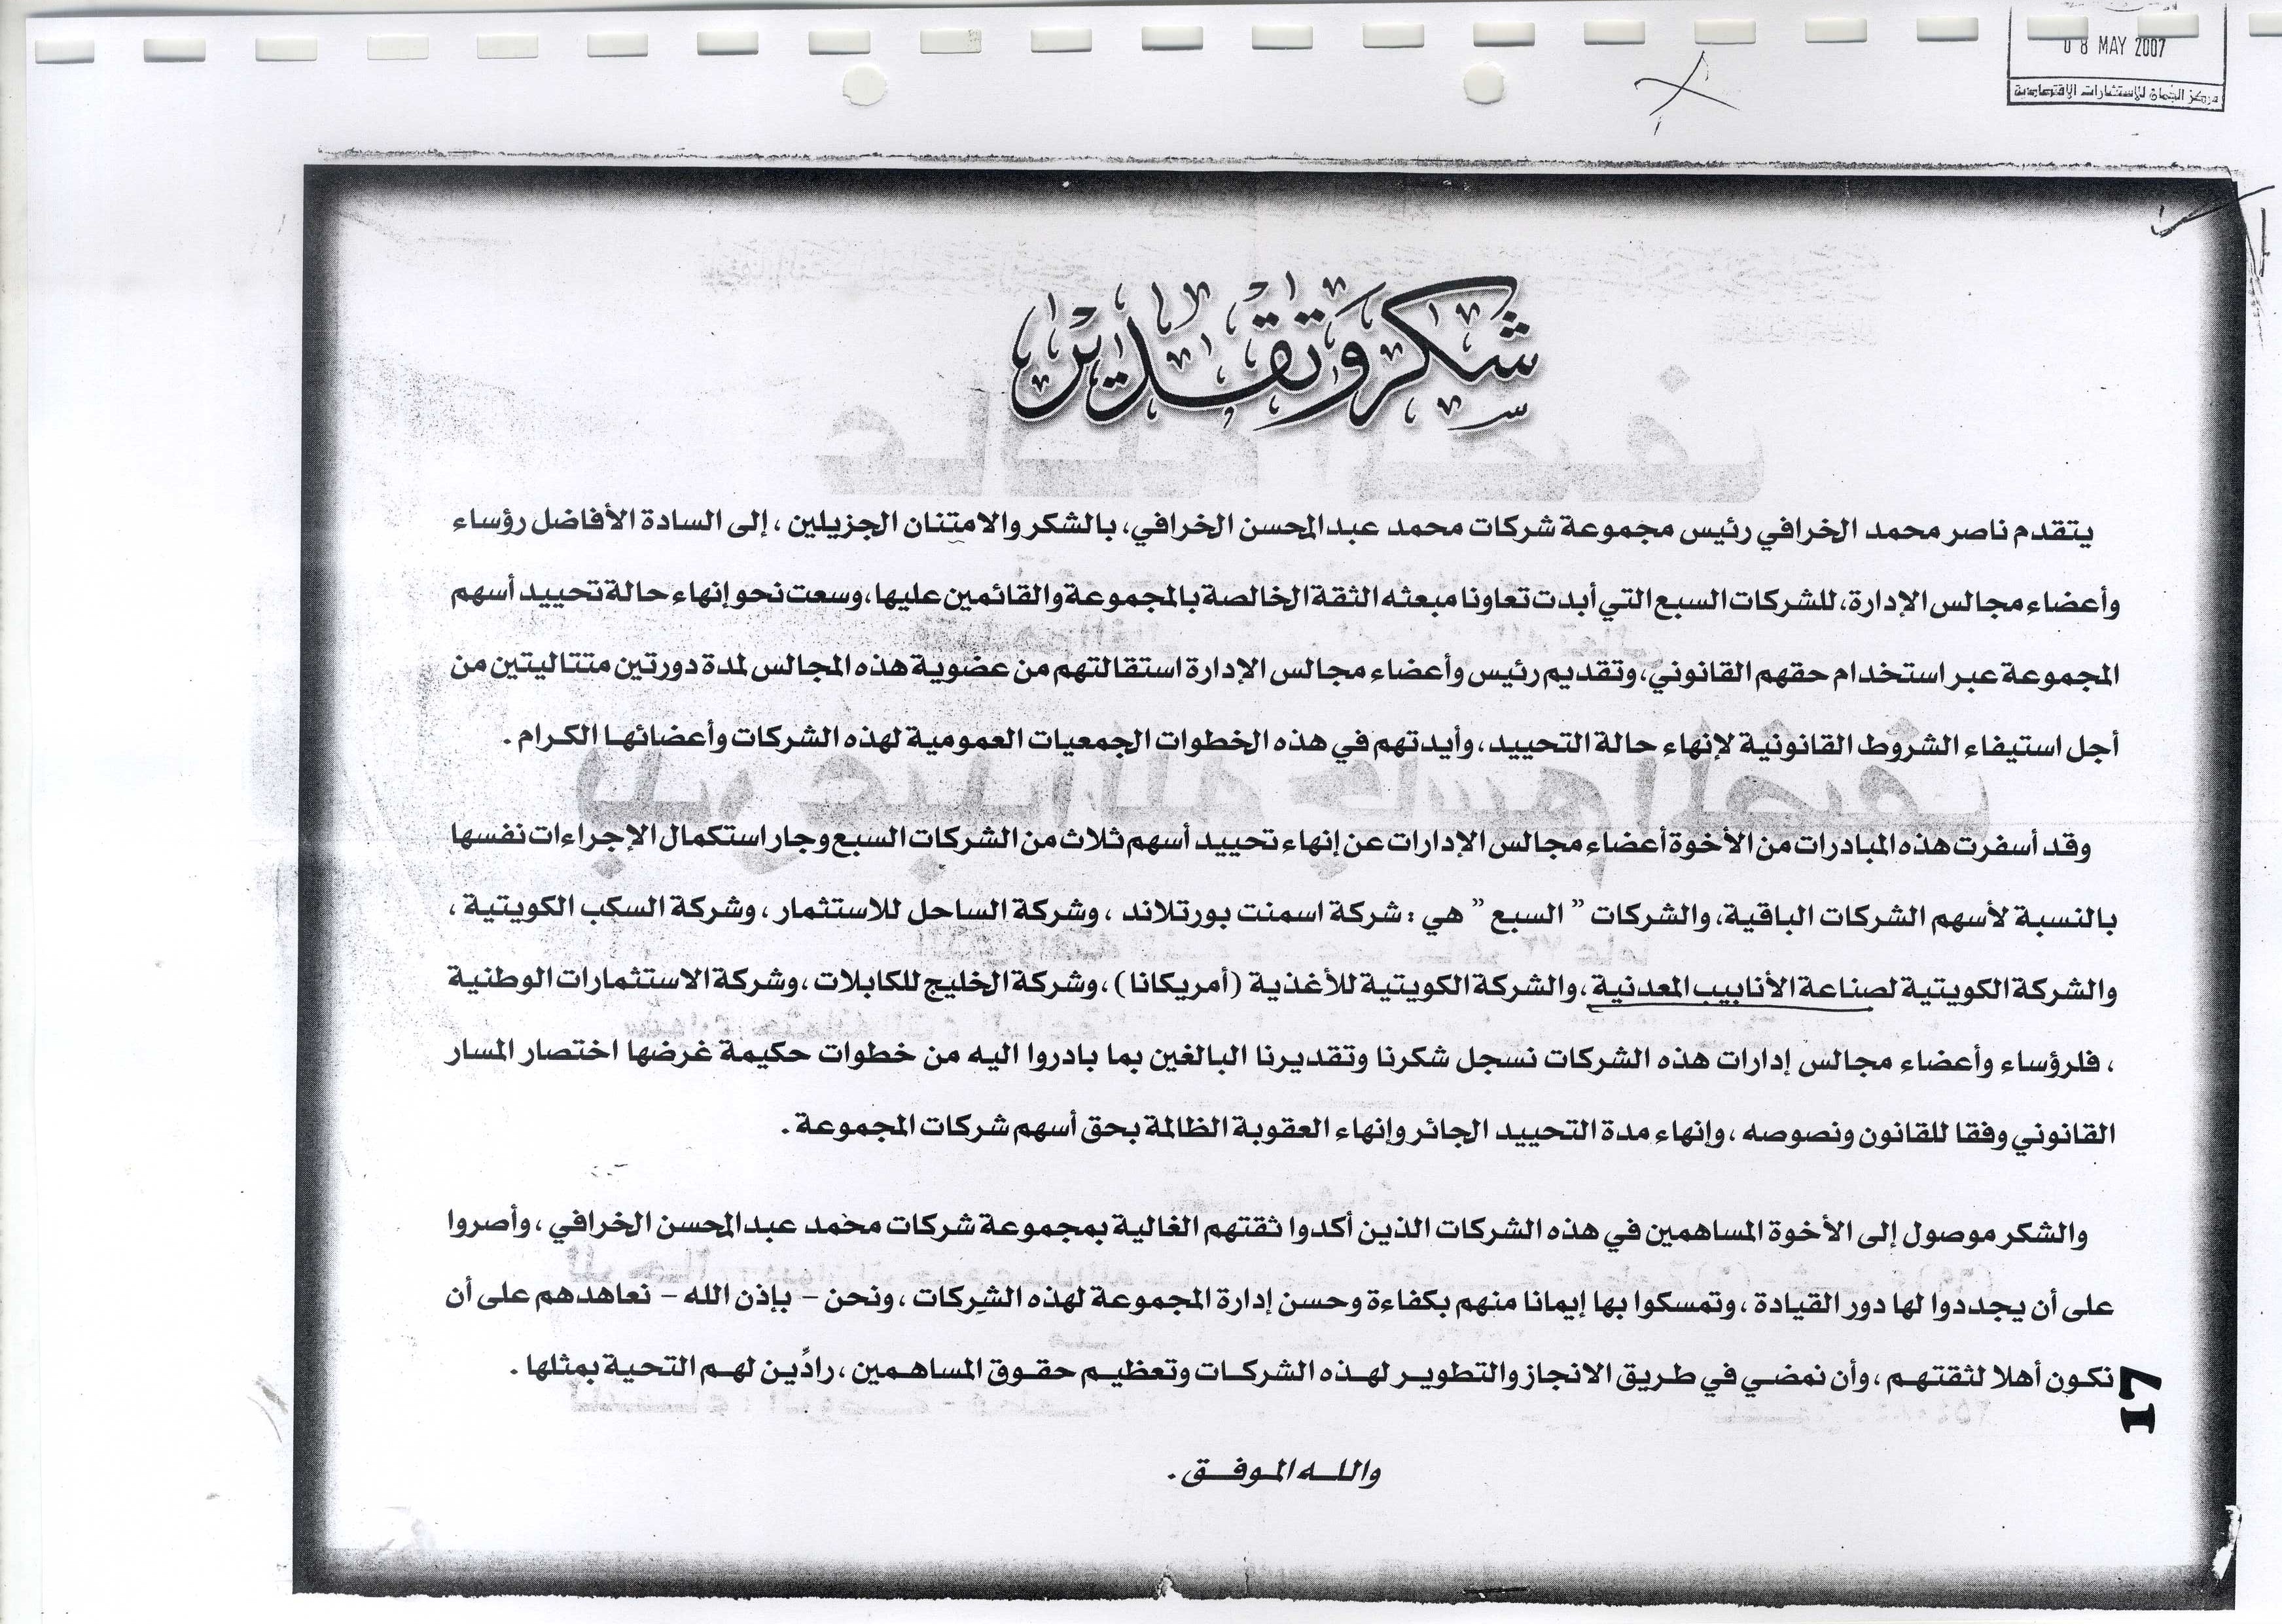 08 MAY 2007
مركز الجمان للاستشارات الاقتصادية
شكر وتقدير
يتقدم ناصر محمد الخرافي رئيس مجموعة شركات محمد عبدالمحسن الخرافي، بالشكر والامتنان الجزيلين ، إلى السادة الأفاضل رؤساء
وأعضاء مجالس الإدارة، للشركات السبع التي أبدت تعاونا مبعثه الثقة الخالصة بالمجموعة والقائمين عليها، وسعت نحو إنهاء حالة تحييد أسهم
المجموعة عبر استخدام حقهم القانوني، وتقديم رئيس وأعضاء مجالس الإدارة استقالتهم من عضوية هذه المجالس لمدة دورتين متتاليتين من
أجل استيفاء الشروط القانونية لإنهاء حالة التحييد ، وأيدتهم في هذه الخطوات الجمعيات العمومية لهذه الشركات وأعضائها الكرام .
وقد أسفرت هذه المبادرات من الأخوة أعضاء مجالس الإدارات عن إنهاء تحييد أسهم ثلاث من الشركات السبع وجار استكمال الإجراءات نفسها
بالنسبة لأسهم الشركات الباقية، والشركات " السبع " هي : شركة اسمنت بورتلاند ، وشركة الساحل للاستثمار ، وشركة السكب الكويتية ،
والشركة الكويتية لصناعة الأنابيب المعدنية ، والشركة الكويتية للأغذية (أمريكانا) ، وشركة الخليج للكابلات ، وشركة الاستثمارات الوطنية
، فلرؤساء وأعضاء مجالس إدارات هذه الشركات نسجل شكرنا وتقديرنا البالغين بما بادروا اليه من خطوات حكيمة غرضها اختصار المسار
القانوني وفقا للقانون ونصوصه ، وإنهاء مدة التحييد الجائر وإنهاء العقوبة الظالمة بحق أسهم شركات المجموعة .
والشكر موصول إلى الأخوة المساهمين في هذه الشركات الذين أكدوا ثقتهم الغالية بمجموعة شركات محمد عبدالمحسن الخرافي ، وأصروا
على أن يجددوا لها دور القيادة ، وتمسكوا بها إيمانا منهم بكفاءة وحسن إدارة المجموعة لهذه الشركات ، ونحن - بإذن الله - نعاهدهم على أن
نكون أهلا لثقتهم ، وأن نمضي في طريق الانجاز والتطوير لهذه الشركات وتعظيم حقوق المساهمين ، رادّين لهم التحية بمثلها .
17
والله الموفق .